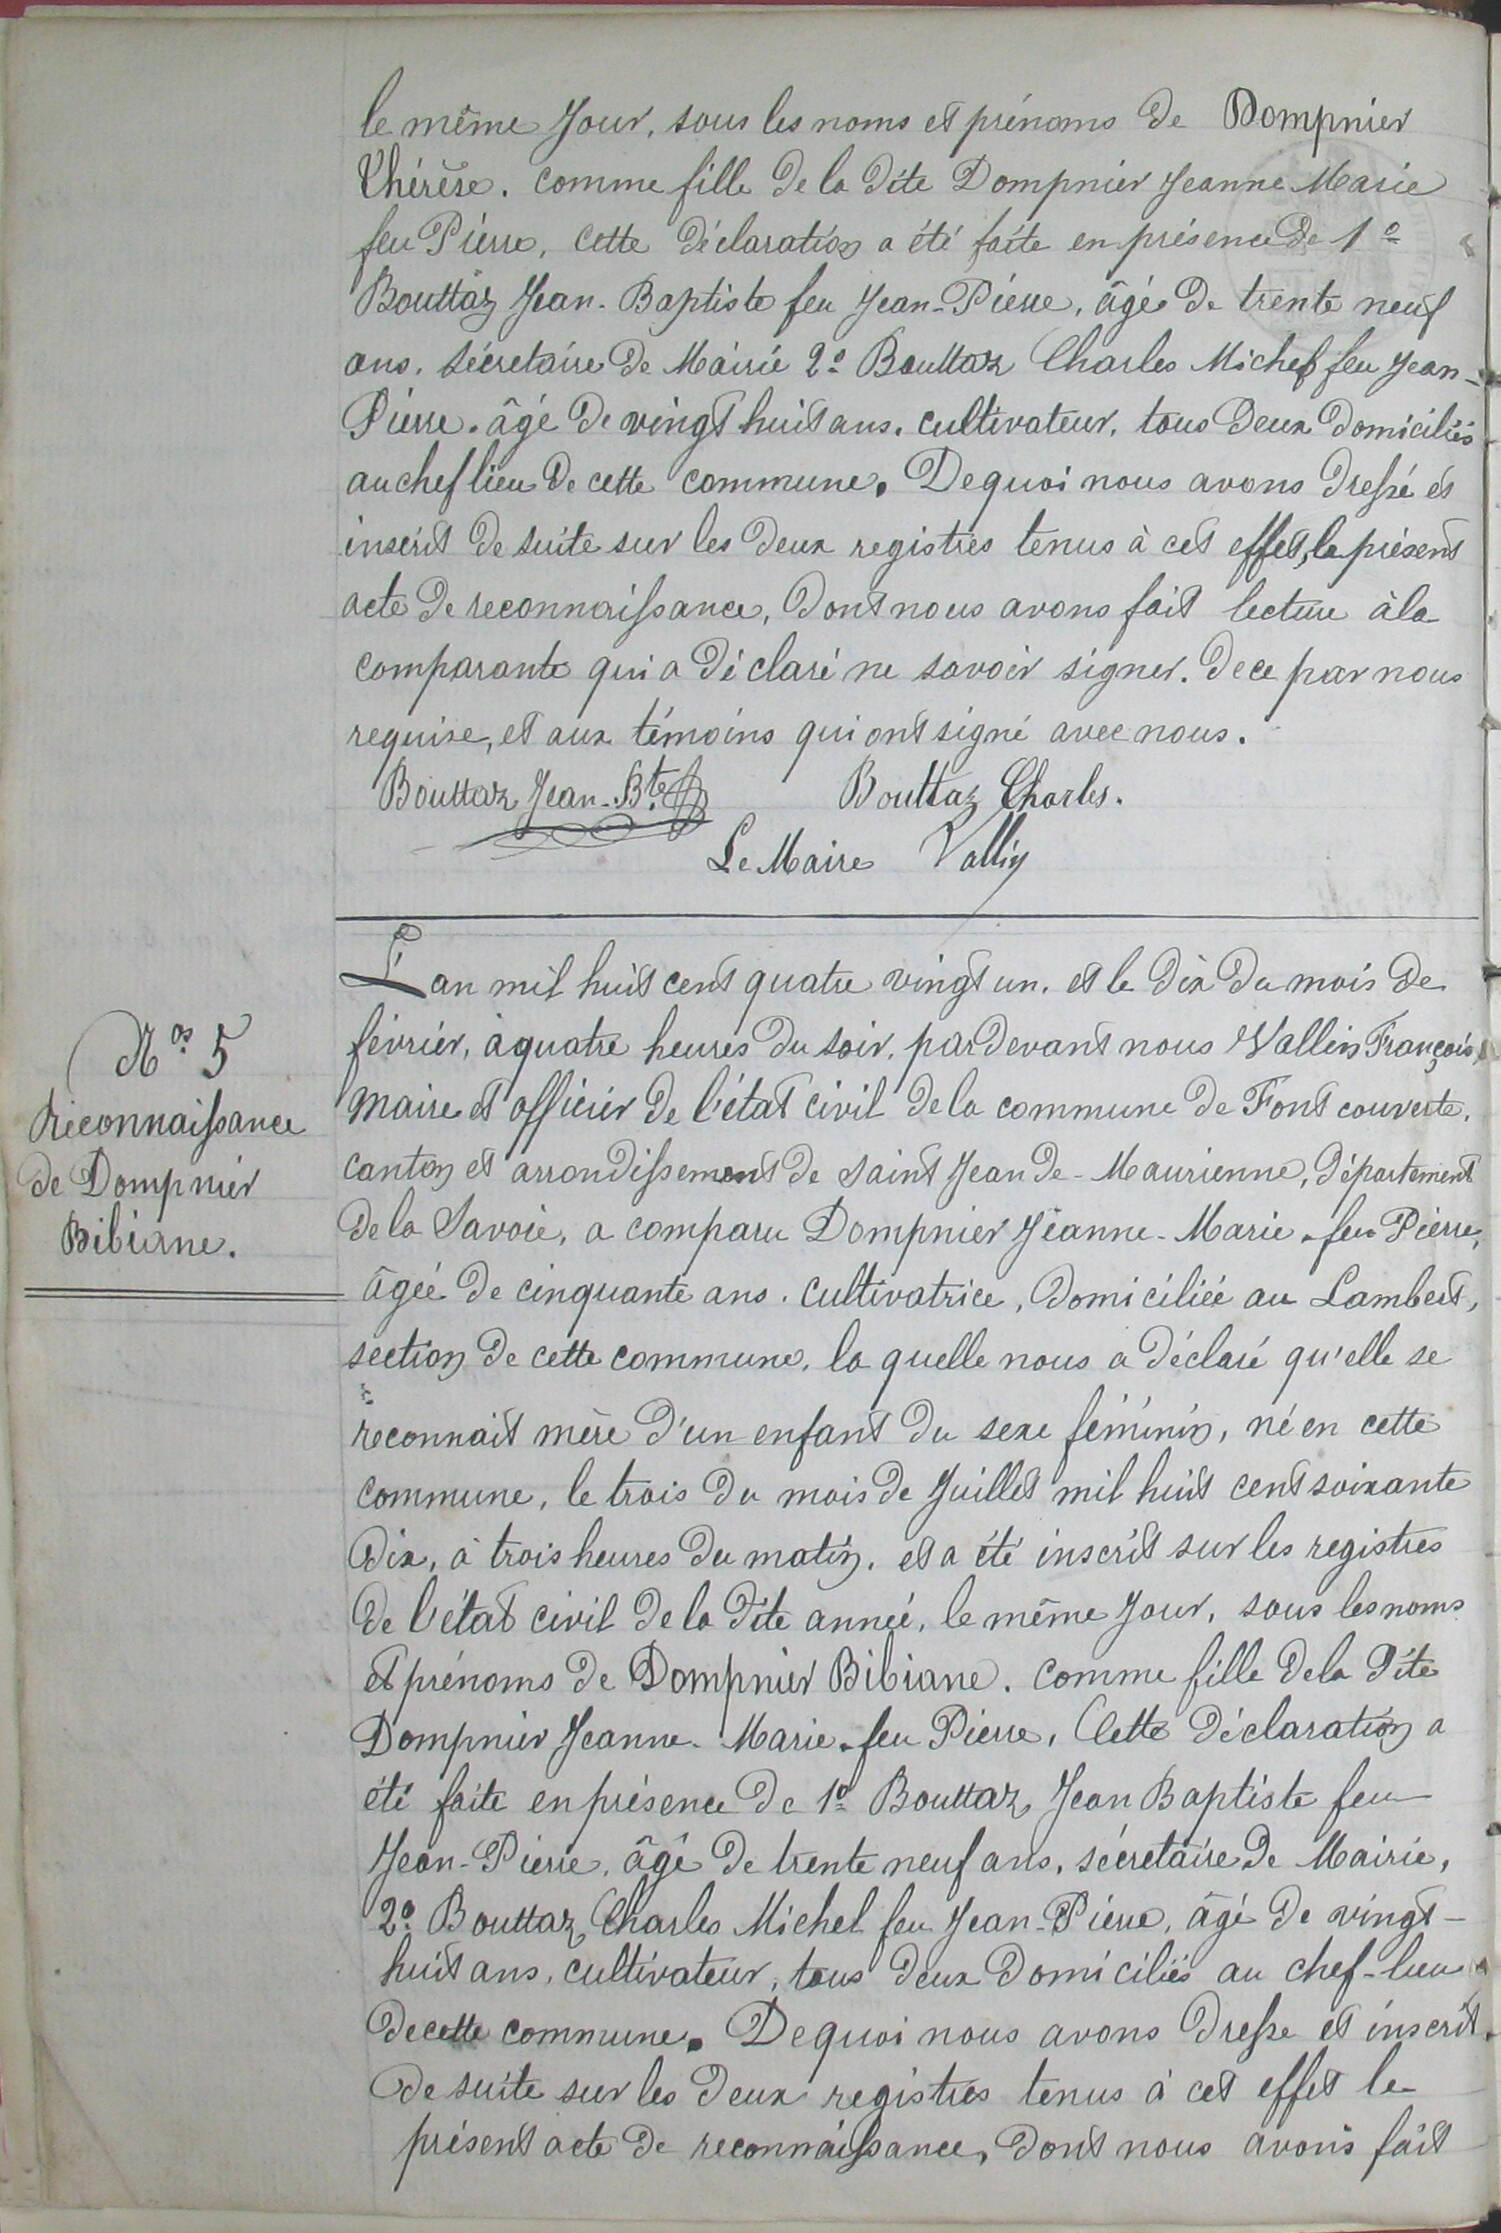 le même Jour, sous les noms et prénoms de Dompnier
Thérèse. comme fille de la dite Dompnier Jeanne Marie
feu Pierre, cette déclaration a été faite en présence de 1º
Bouttaz Jean-Baptiste feu Jean-Pierre, âgé de trente neuf
ans, sécretaire de Mairie 2º Bouttaz Charles Michel feu Jean-
Pierre. âgé de vingt huit ans. cultivateur, tous deux domiciliés
au chef lieu de cette commune. De quoi nous avons dressé et
inscrit de suite sur les deux registres tenus à cet effet, le présent
acte de reconnaissance, dont nous avons fait lecture à la
comparante qui a déclaré ne savoir signer. de ce par nous
requise, et aux témoins qui ont signé avec nous.
Bouttaz Jean-Bte Bouttaz Charles.
Le Maire Vallin
L'an mil huit cent quatre vingt un. et le dix du mois de
février, à quatre heures du soir, par devant nous Vallin François,
maire et officier de l'état civil de la commune de Font couverte,
canton et arrondissement de Saint Jean de-Maurienne, département
de la Savoie, a comparu Dompnier Jeanne-Marie feu Pierre,
âgée de cinquante ans. cultivatrice, domiciliée au Lambert,
section de cette commune, la quelle nous a déclaré qu'elle se
reconnait mère d'un enfant du sexe féminin, né en cette
commune, le trois du mois de Juillet mil huit cent soixante
dix, à trois heures du matin. et a été inscrit sur les registres
de l'état civil de la dite année, le même Jour, sous les noms
et prénoms de Dompnier Bibiane. comme fille de la dite
Dompnier Jeanne-Marie feu Pierre, Cette déclaration a
été faite en présence de 1º Bouttaz Jean Baptiste feu
Jean-Pierre, âgé de trente neuf ans, sécretaire de Mairie,
2º Bouttaz Charles Michel feu Jean-Pierre, âgé de vingt-
huit ans, cultivateur, tous deux domiciliés au chef-lieu
de cette commune. De quoi nous avons dressé et inscrit
de suite sur les deux registres tenus à cet effet le
présent acte de reconnaissance, dont nous avons fait
Nos 5
Reconnaissance
de Dompnier
Bibiane.